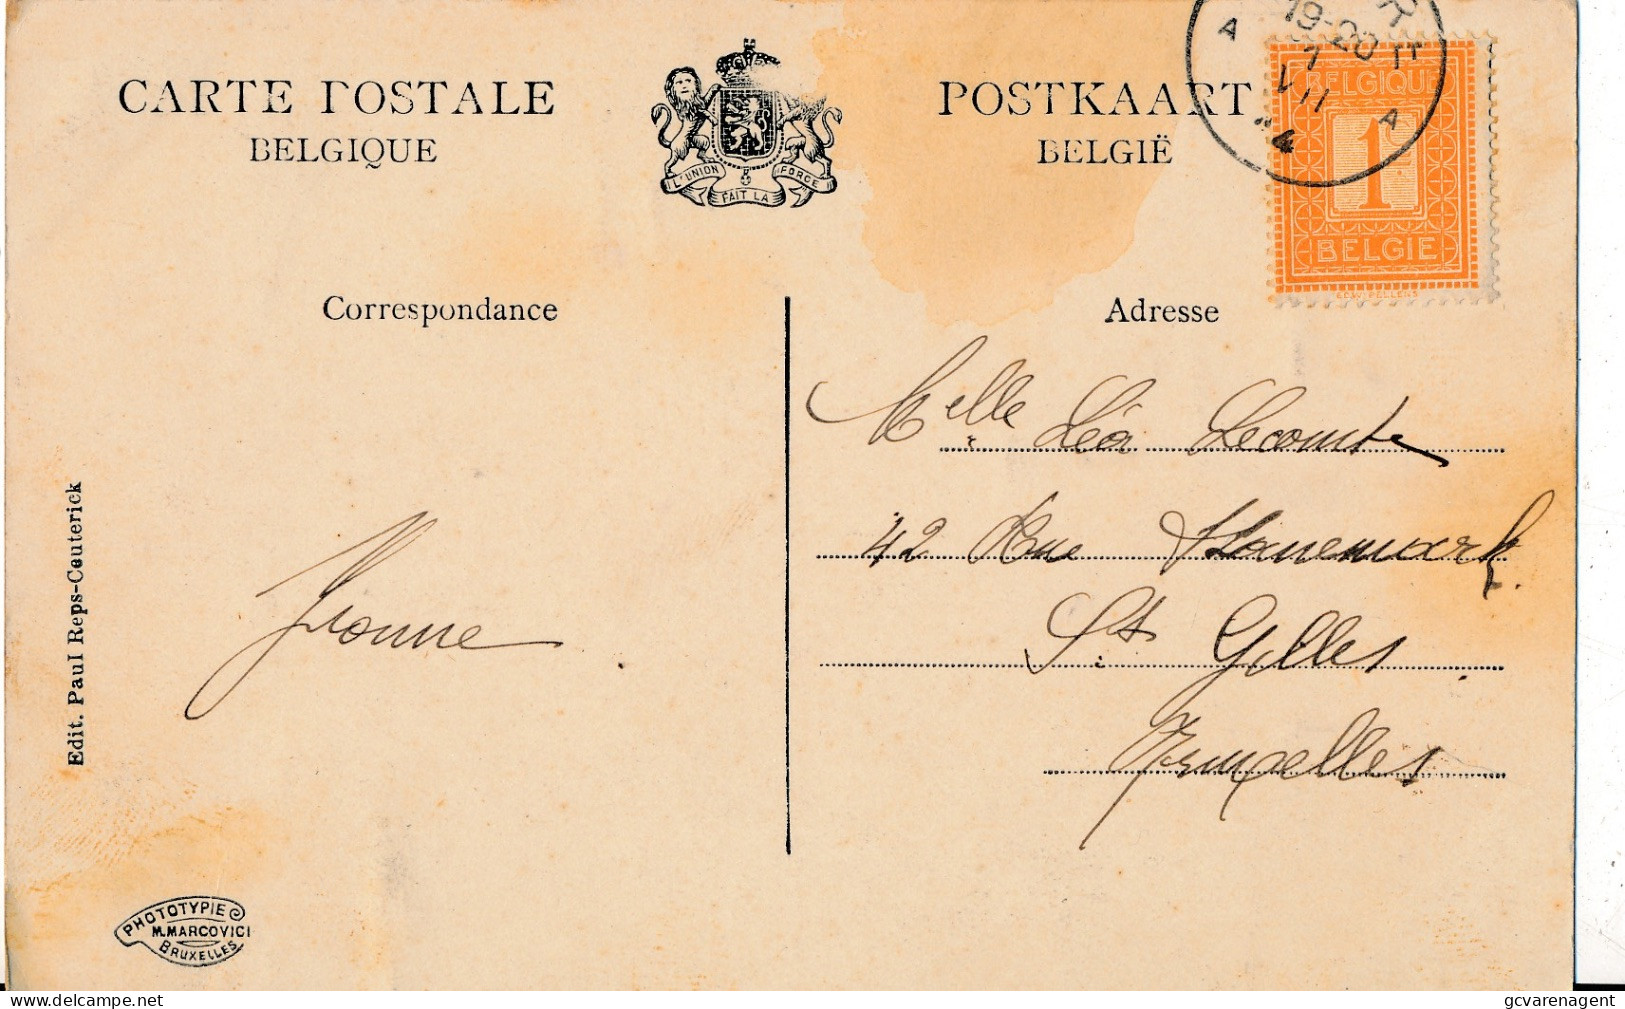 CARTE POSTALE
BELGIQUE
L'UNION FAIT LA FORCE
POSTKAART
BELGIË
19-20
7
VII
A A
BELGIQUE
1c
BELGIË
EDW. PELLENS
Correspondance
Adresse
Melle Léa Lecomte
42 Rue
St Gilles.
Bruxelles
Yvonne
Edit. Paul Reps-Ceuterick
PHOTOTYPIE
M. MARCOVICI
BRUXELLES
delcampe.net
gcvarenagent